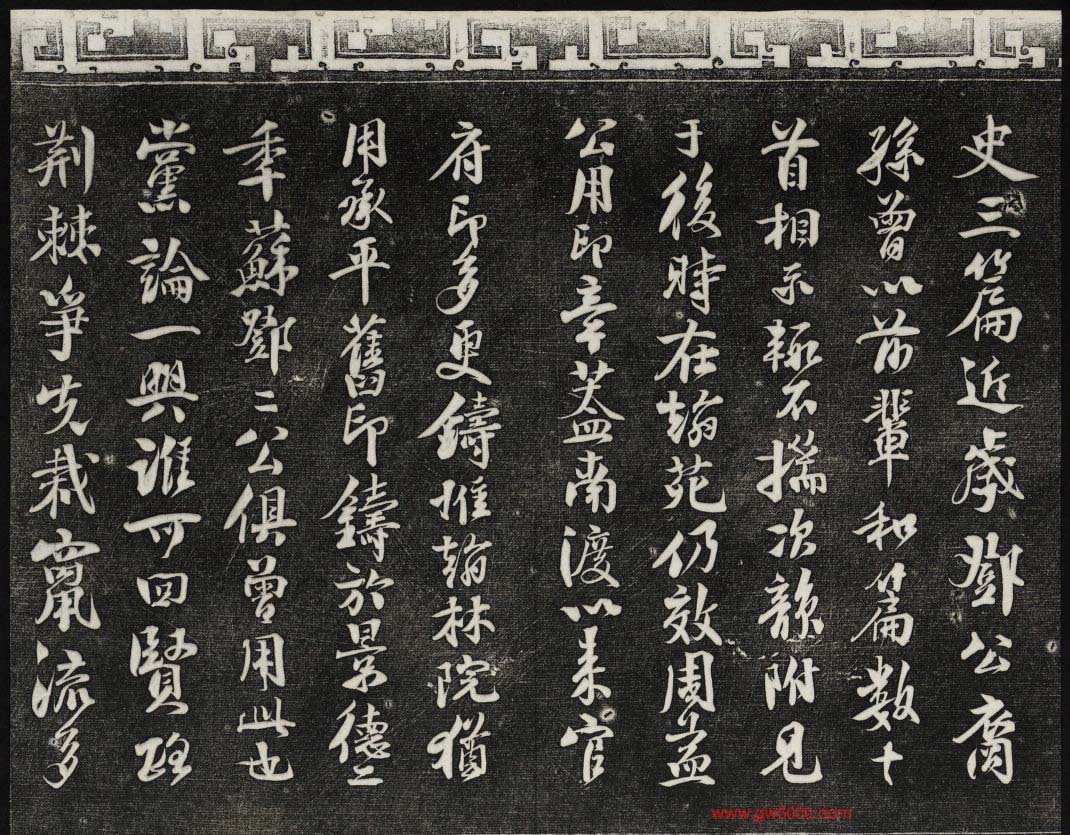 史三篇近歲鄧公裔
孫曾以前輩和篇數十
首相示輒不揣次韻附見
于後時在翰苑仍效周益
公用印章盖南渡以来官
府印多更鑄惟翰林院猶
用承平舊印鑄於景德二
秊蘇鄧二公俱曾用此也
黨論一興誰可回賢路
荆棘爭先栽竄流多
www.gw5000.com